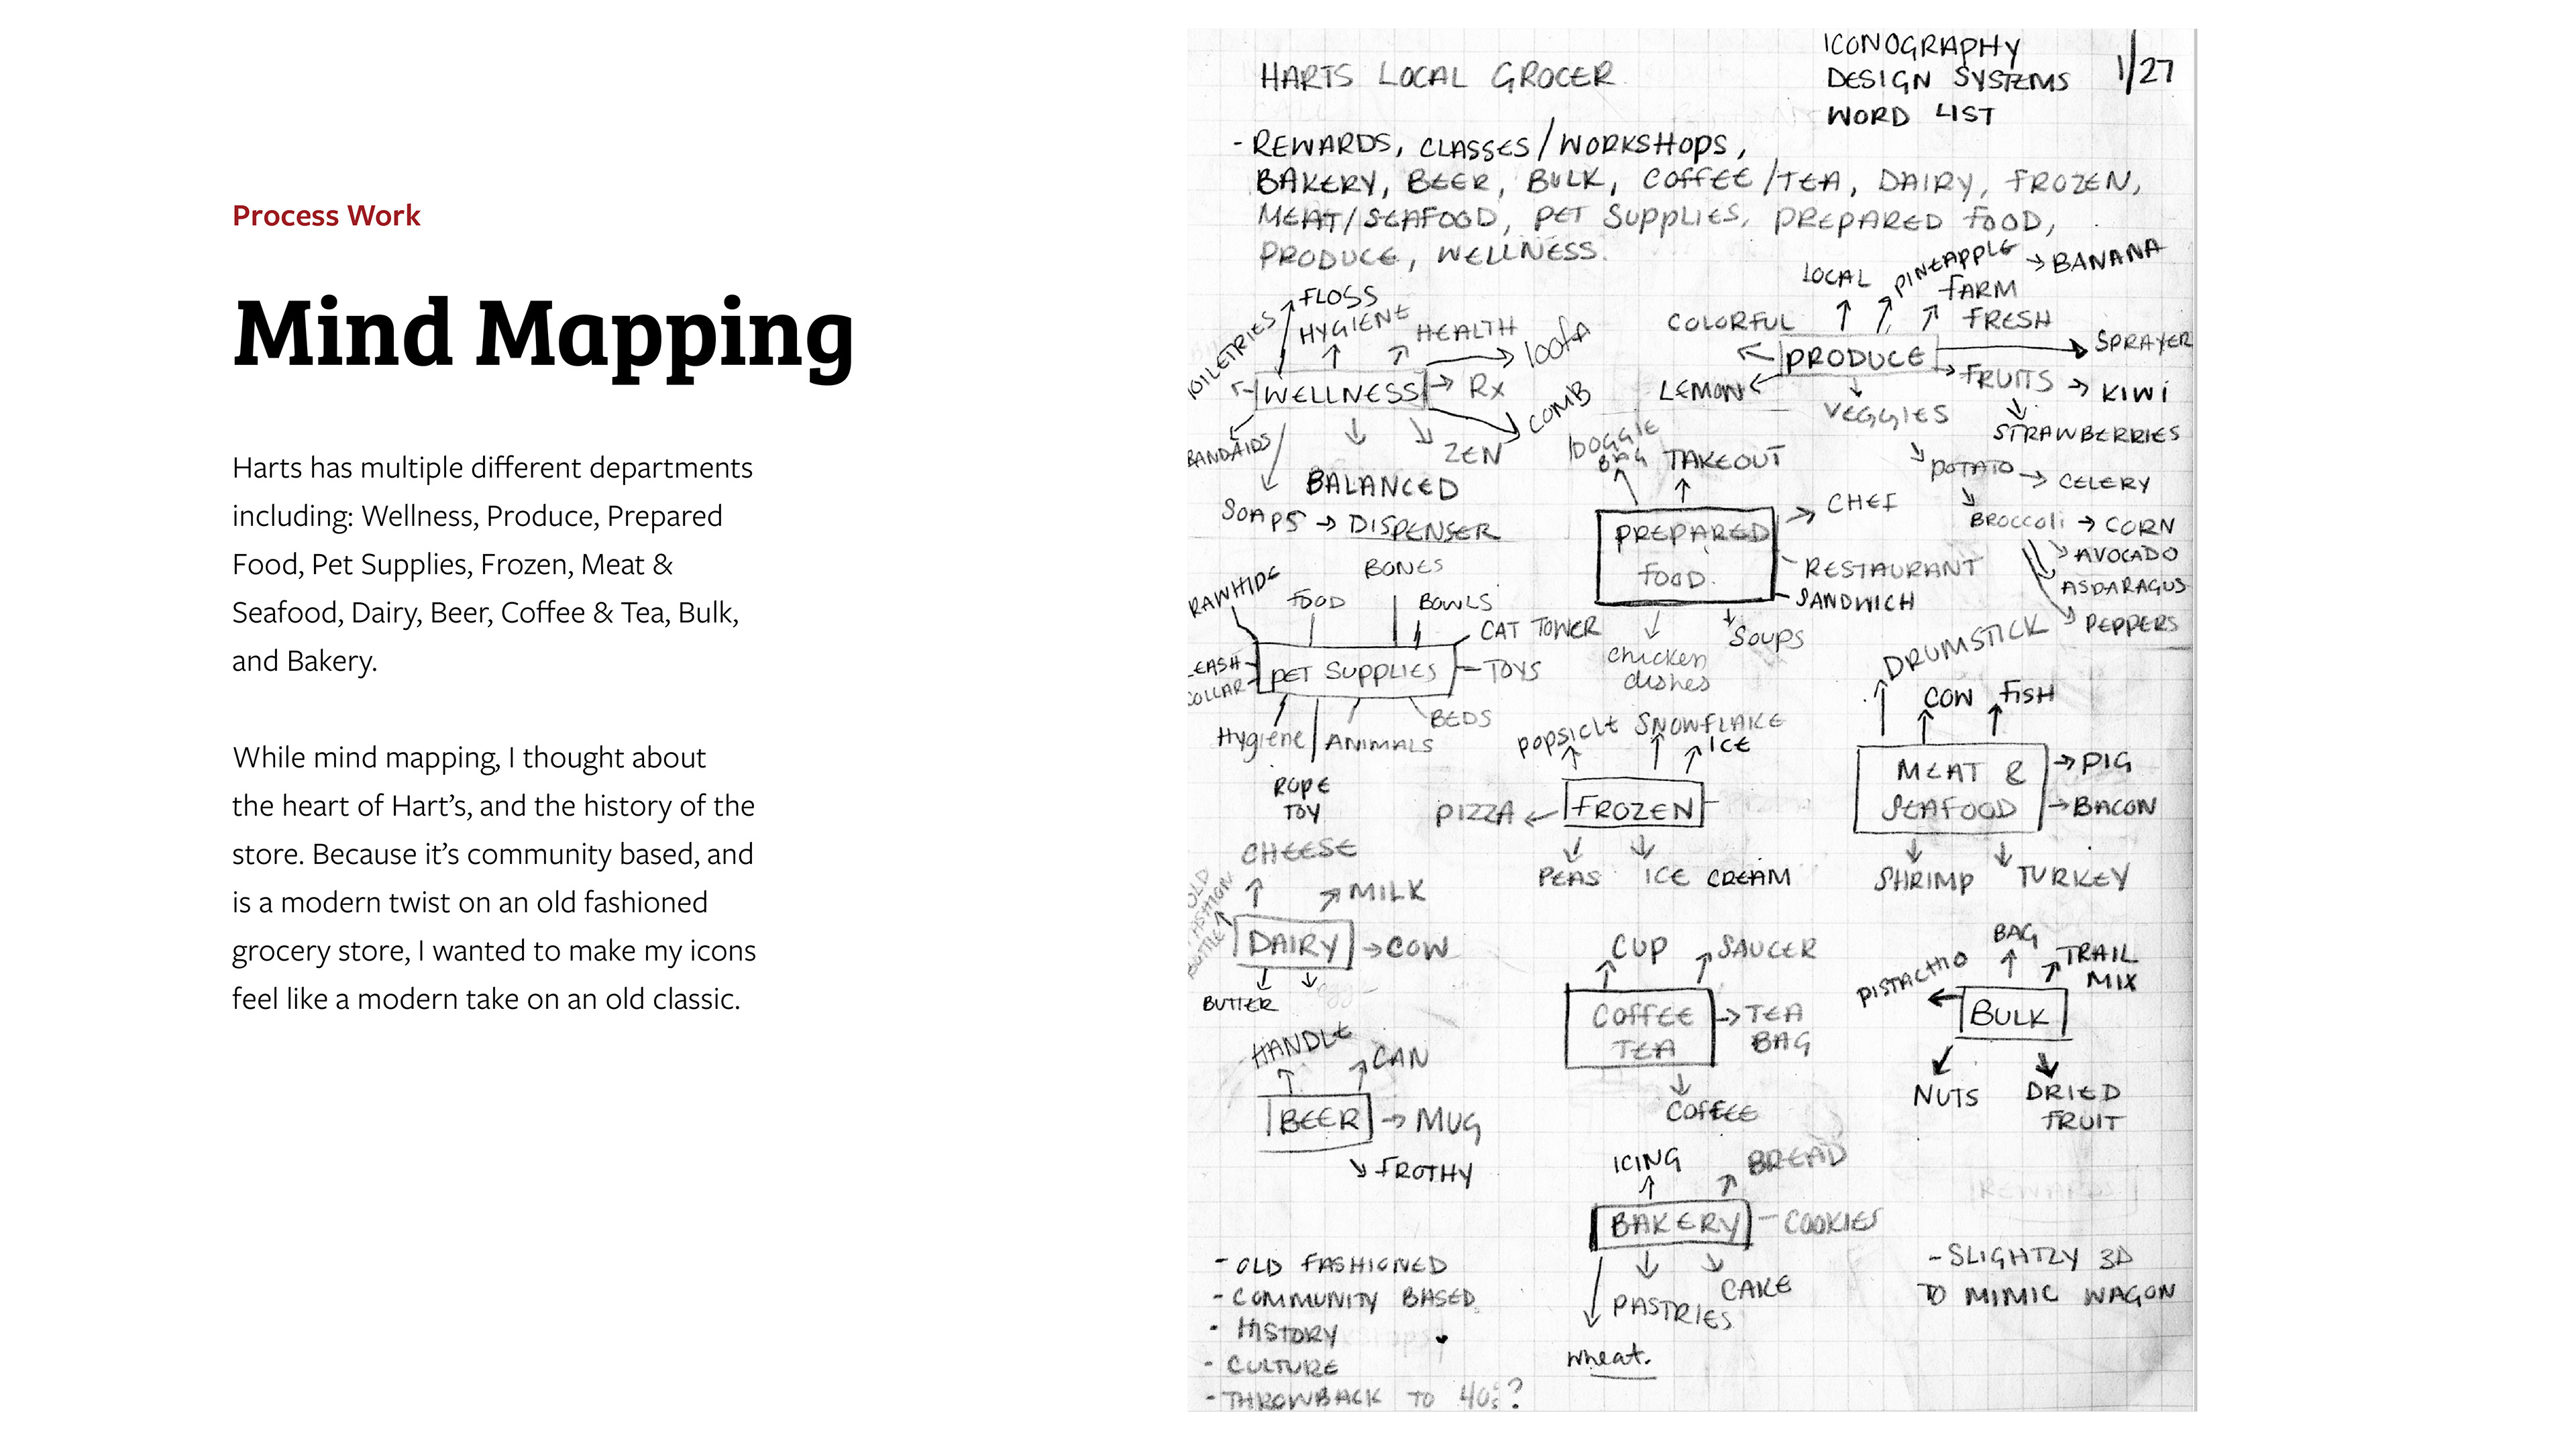 Process Work
Mind Mapping
Harts has multiple different departments
including: Wellness, Produce, Prepared
Food, Pet Supplies, Frozen, Meat &
Seafood, Dairy, Beer, Coffee & Tea, Bulk,
and Bakery.
While mind mapping, I thought about
the heart of Hart’s, and the history of the
store. Because it’s community based, and
is a modern twist on an old fashioned
grocery store, I wanted to make my icons
feel like a modern take on an old classic.
HARTS LOCAL GROCER
ICONOGRAPHY
DESIGN SYSTEMS
WORD LIST
1/27
- REWARDS, CLASSES/WORKSHOPS,
BAKERY, BEER, BULK, COFFEE/TEA, DAIRY, FROZEN,
MEAT/SEAFOOD, PET SUPPLIES, PREPARED FOOD,
PRODUCE, WELLNESS.
TOILETRIES
FLOSS
HYGIENE
HEALTH
loofA
WELLNESS
Rx
COMB
BANDAIDS
ZEN
BALANCED
SOAPS → DISPENSER
LOCAL
PINEAPPLE
→ BANANA
FARM
FRESH
COLORFUL
PRODUCE
SPRAYER
LEMON
FRUITS → KIWI
VEGGIES
STRAWBERRIES
POTATO → CELERY
BROCCOLI → CORN
AVOCADO
ASPARAGUS
PEPPERS
DOGGIE
BAG
TAKEOUT
PREPARED
FOOD.
CHEF
RESTAURANT
SANDWICH
SOUPS
chicken
dishes
RAWHIDE
FOOD
BONES
BOWLS
CAT TOWER
LEASH
COLLAR
PET SUPPLIES
TOYS
Hygiene
ANIMALS
BEDS
ROPE
TOY
POPSICLE
SNOWFLAKE
ICE
PIZZA
FROZEN
PEAS
ICE CREAM
DRUMSTICK
COW
FISH
MEAT &
SEAFOOD
→ PIG
→ BACON
SHRIMP
TURKEY
CHEESE
MILK
OLD
FASHION
BOTTLE
DAIRY
→ COW
BUTTER
egg
CUP
SAUCER
COFFEE
TEA
→ TEA
BAG
COFFEE
BAG
TRAIL
MIX
PISTACHIO
BULK
NUTS
DRIED
FRUIT
HANDLE
CAN
BEER
→ MUG
FROTHY
ICING
BREAD
BAKERY
- COOKIES
CAKE
PASTRIES
wheat.
REWARDS
- OLD FASHIONED
- COMMUNITY BASED
- HISTORY
- CULTURE
- THROWBACK TO 40s?
- SLIGHTLY 3D
TO MIMIC WAGON